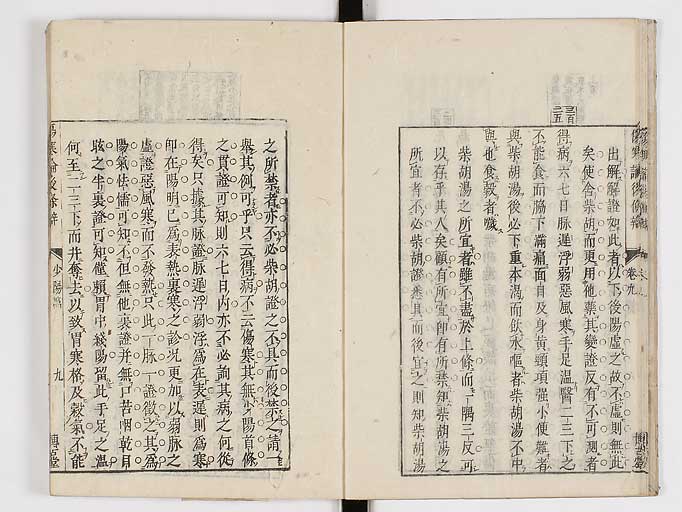 出解解證如此者以下後陽虛之故不虛則無此
矣使舍柴胡而更用他藥其變證反有不可測者
得病六七日脉遲浮弱惡風寒手足溫醫二三下之
不能食而脇下滿痛面目及身黃頸項强小便難者
與柴胡湯後必下重本渴而飲水嘔者柴胡湯不中
與也食穀者噦
柴胡湯之所宜者雖不盡於上條而一隅三反可
以存乎其人矣顧有所宜卽有所禁知柴胡湯之
所宜者不必柴胡證悉具而後宜之則知柴胡湯
卷九
之所禁者亦不必柴胡證之不具而後禁之請一
舉其例可乎只云得病不云傷寒其無少陽首條
之貫證可知則六七日內亦不必詢其病之何從
得矣只據其脉證脉遲浮弱浮爲在表遲則爲寒
卽在陽明已爲表熱裏寒之診況更加以弱脉之
虛證惡風寒而不發熱只此一脉一證徵之其爲
陽氣怯懦可知不但無他裏證并無口苦咽乾目
眩之半裏證可知僅賴胃中綫陽留此手足之溫
何至二三下而并奪去以致胃寒格及穀氣不能
少陽篇
九